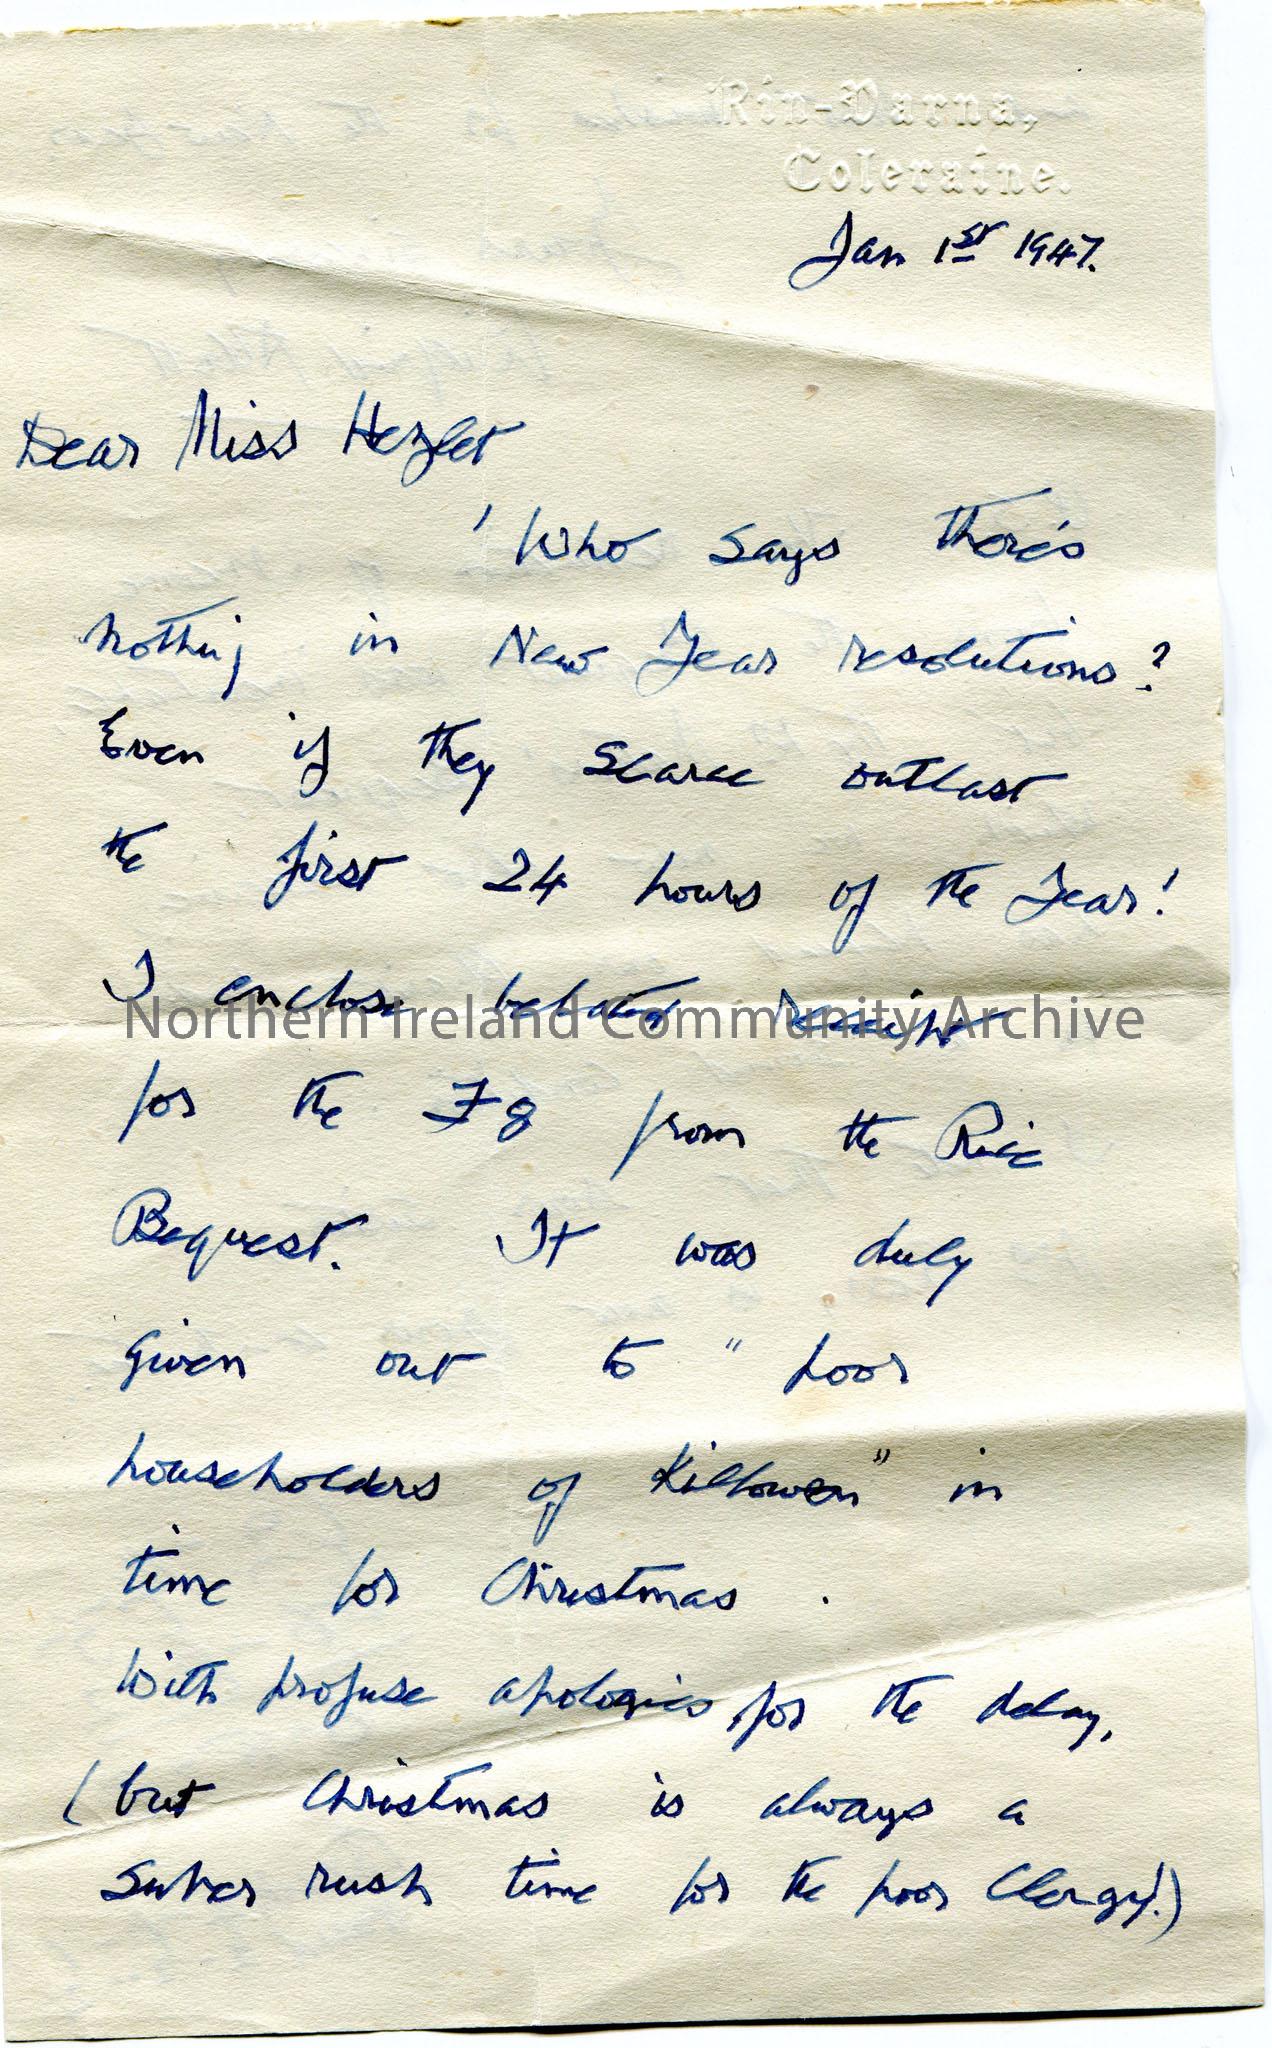 Rin-Varna,
Coleraine.
Jan 1st 1947.
Dear Miss Hezlet
' Who says there's
nothing in New Year resolutions?
Even if they scarce outlast
the first 24 hours of the Year!
I enclose belated receipt
Northern Ireland Community Archive
for the £8 from the Rice
Bequest. It was duly
given out to " poor
householders of Killowen" in
time for Christmas.
With profuse apologies for the delay,
(but Christmas is always a
super rush time for the poor Clergy!)